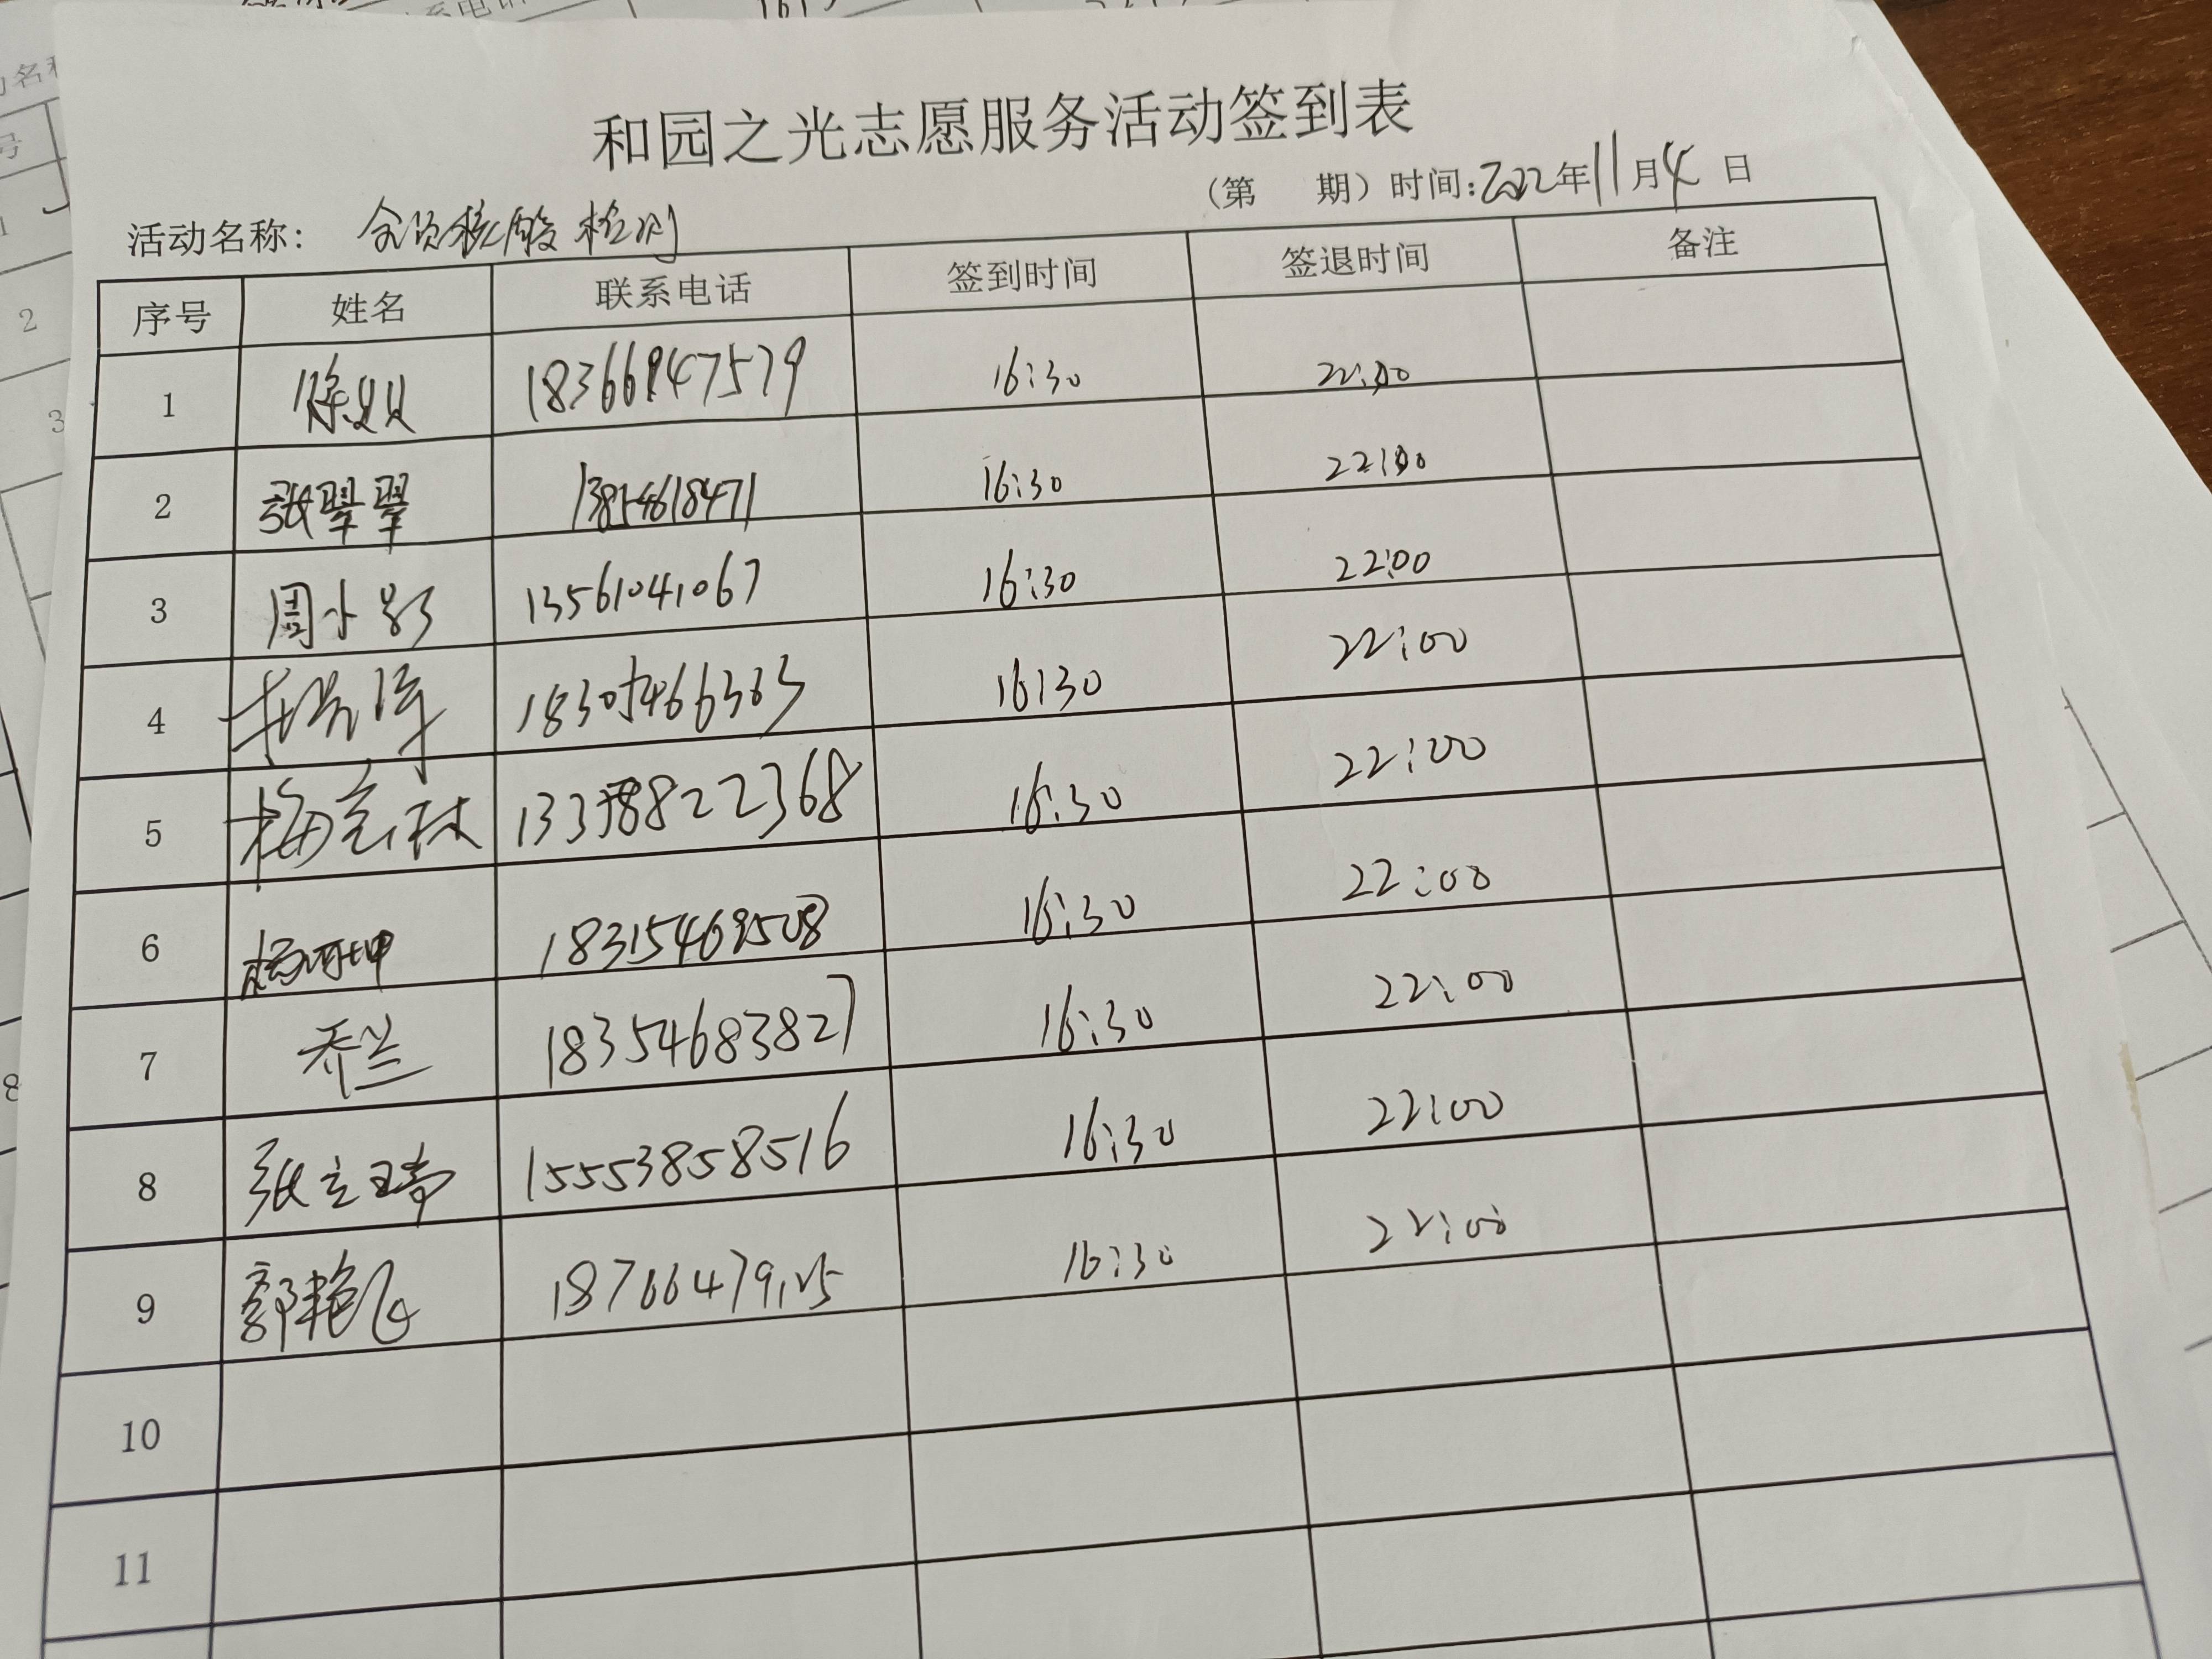 和园之光志愿服务活动签到表
(第 期) 时间:2022年11月4日
活动名称: 全员核酸检测
序号 姓名 联系电话 签到时间 签退时间 备注
1 徐贝贝 18366947579 16:30 22:00
2 张翠翠 13854618471 16:30 22:00
3 周小影 13561041067 16:30 22:00
4 18305466363 16:30 22:00
5 梅京林 22368 16:30 22:00
6 杨珂坤 1831546 508 16:30 22:00
7 乔兰 18354683827 16:30 22:00
8 张立琦 15553858516 16:30 22:00
9 郭艳飞 18766479125 16:30 22:00
10
11